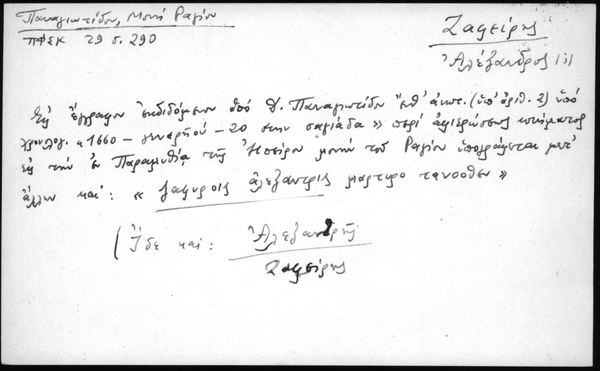 Παναγιωτίδου, Μονή Ραγίου
ΠΦΣΚ 29 σ. 290
Ζαφείρης
Ἀλέξανδρος (;)
Εἰς ἔγγραφον ἐκδιδόμενον ὑπό Δ. Παναγιωτίδου ἔνθ' ἀνωτ. (ὑπ' ἀριθ. 2) ὑπό
χρονολογ. « 1660 – γεναρηού – 20 στην σαγιάδα » περί ἀφιερώσεως κτήματος
εἰς τήν ἐν Παραμυθίᾳ τῆς Ἠπείρου μονήν τοῦ Ραγίου ὑπογράφεται μετ'
ἄλλων καί : « ζαφυροις ἀλεξαντρις μαρτυρο τανοοθεν »
(Ἴδε καί : Ἀλεξανδρῆς
Ζαφείρης